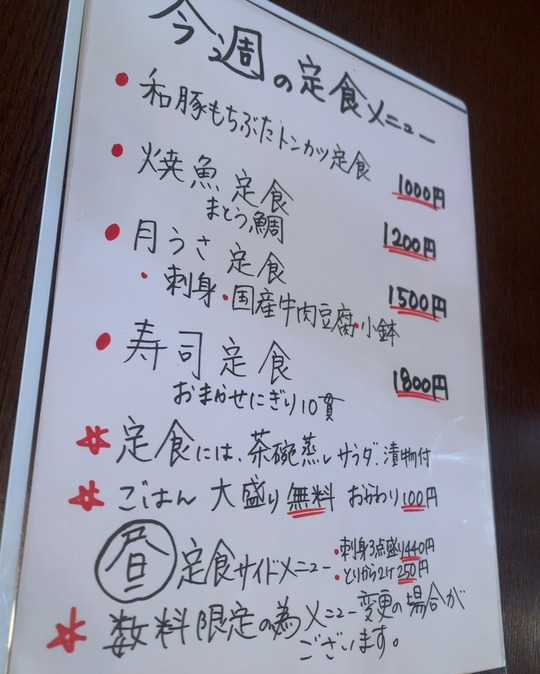 今週の定食メニュー
• 和豚もちぶたトンカツ定食 1000円
• 焼魚定食 1200円
まとう鯛
• 月うさ定食 1500円
• 刺身 • 国産牛肉豆腐 • 小鉢
• 寿司定食 1800円
おまかせにぎり10貫
☆ 定食には、茶碗蒸し サラダ、漬物付
☆ ごはん 大盛り 無料 おかわり 100円
昼 定食サイドメニュー • 刺身3点盛り 440円
• とりから2ケ 250円
☆ 数料限定の為メニュー変更の場合が
ございます。